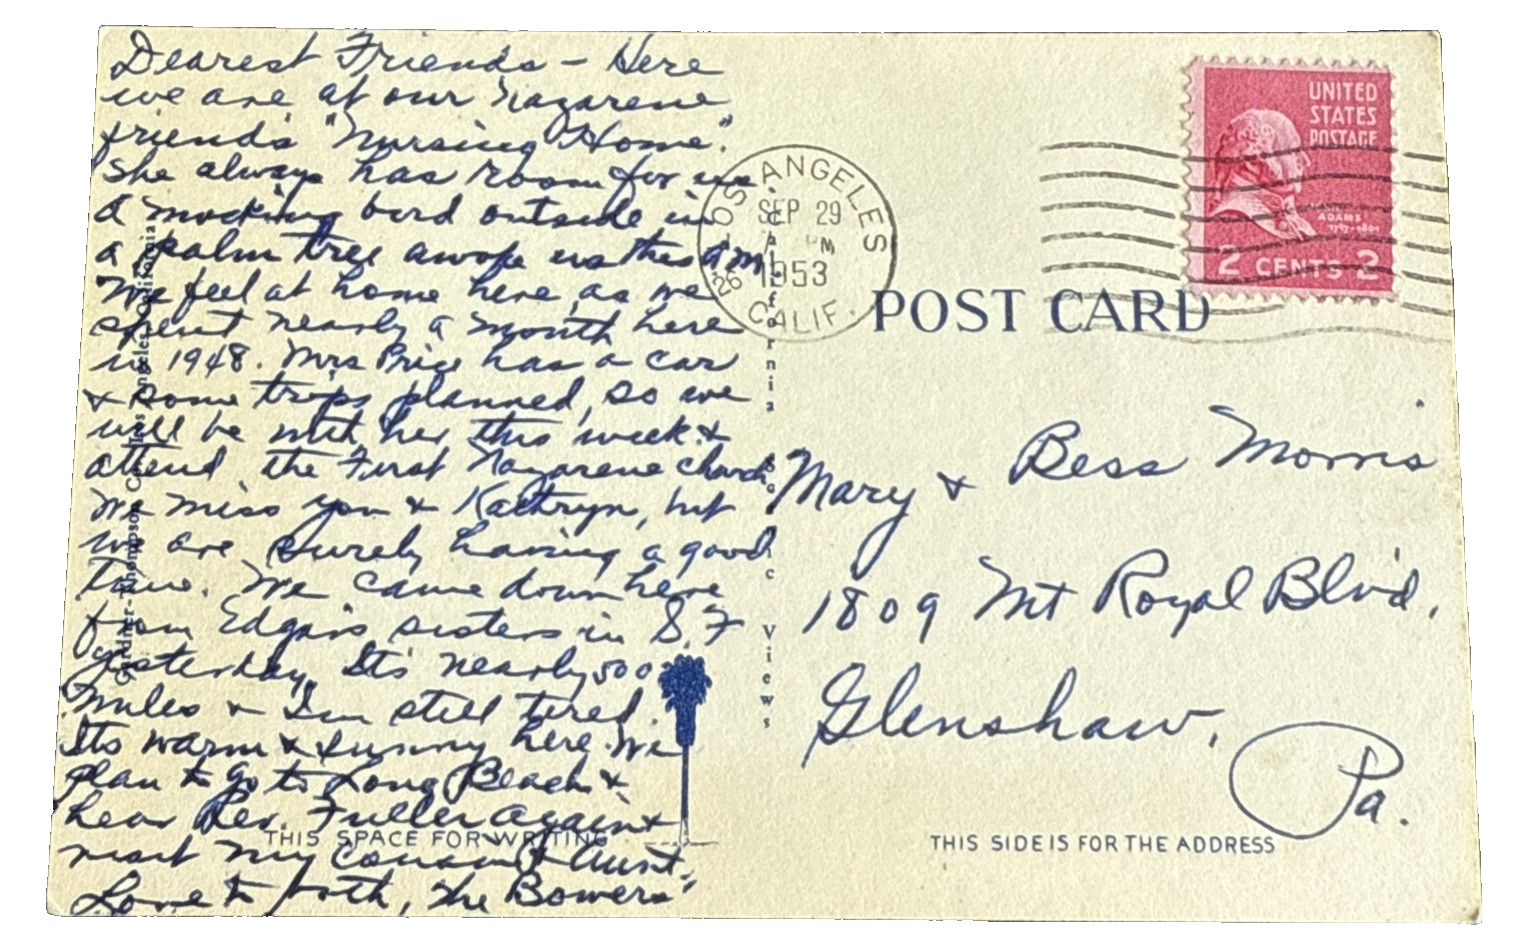 Dearest Friends - Here
we are at our Nazarene
friend's "Nursing Home."
She always has room for us
A mocking bird outside in
a palm tree awoke us this A.M.
We feel at home here, as we
spent nearly a month here
in 1948. Mrs Price has a car
& some trips planned, so we
will be with her this week &
attend the First Nazarene church
We miss you & Kathryn, but
we are surely having a good
time. We came down here
from Edgar's sisters in S.F
yesterday. It's nearly 500
miles & I'm still tired.
Its warm & sunny here. We
plan to go to Long Beach &
hear Rev. Fuller again &
visit my cousin & Aunt.
Love to both, The Bowers
Gardner-Thompson Co., Los Angeles, California
THIS SPACE FOR WRITING
California Scenic Views
LOS ANGELES
SEP 29
PM
1953
26
CALIF.
UNITED
STATES
POSTAGE
ADAMS
1797-1801
2 CENTS 2
POST CARD
Mary & Bess Morris
1809 Mt Royal Blvd.
Glenshaw,
Pa.
THIS SIDE IS FOR THE ADDRESS